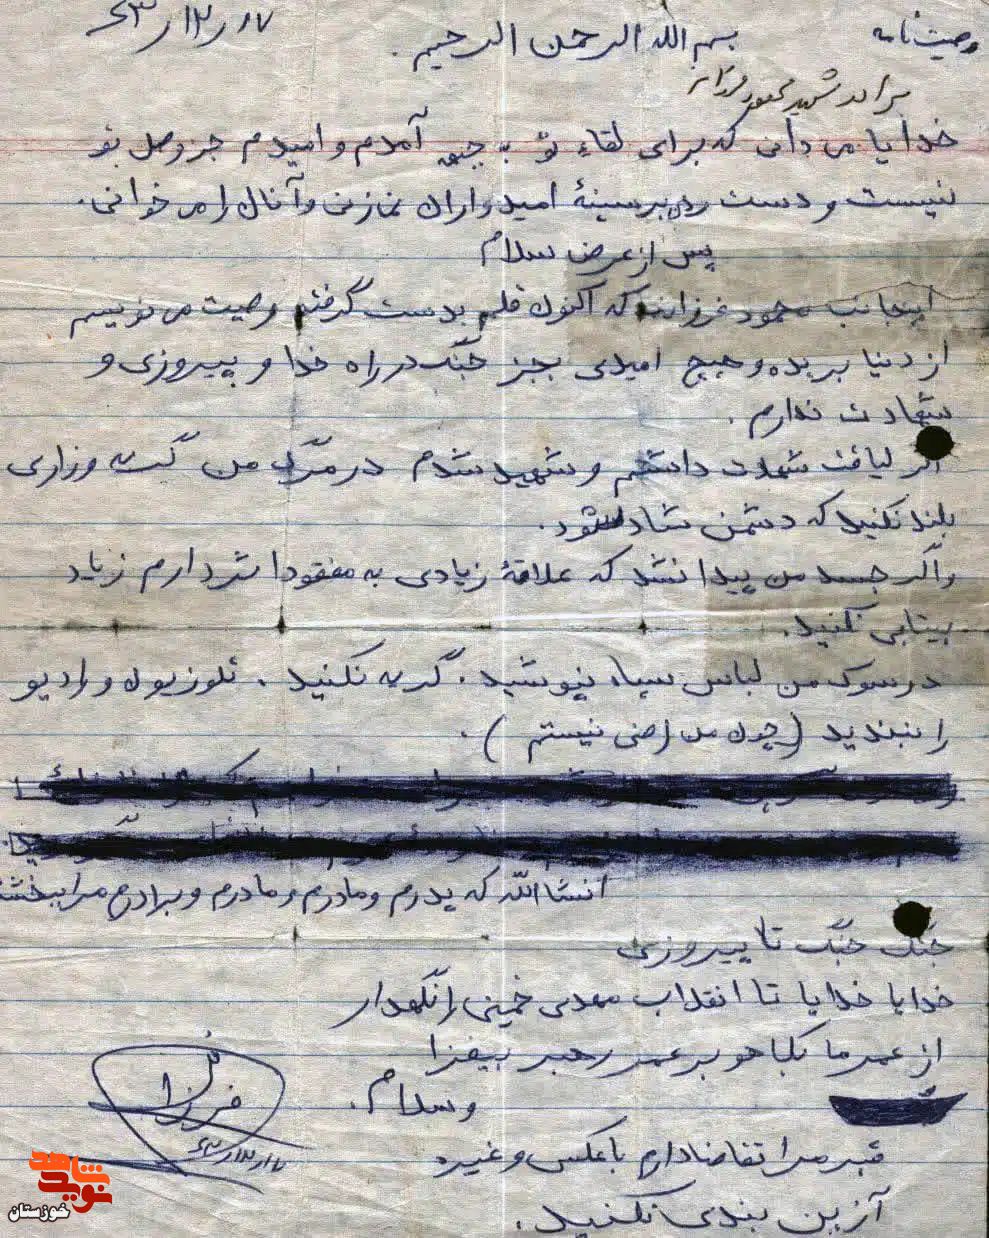 وصیت‌نامه
بسم الله الرحمن الرحیم.
۶۳/۱۲/۱۷
برادر شهید محمود فرزانه
خدایا می دانی که برای لقاء تو به جبهه آمدم و امیدم جز وصل بتو
نیست و دست رد بر سینهٔ امیدواران نمازنی و آنان را می خوانی.
پس از عرض سلام
اینجانب محمود فرزانه که اکنون قلم بدست گرفتم وصیت می نویسم
از دنیا بریده و هیچ امیدی بجز جنگ در راه خدا و پیروزی و
شهادت ندارم.
اگر لیاقت شهادت داشتم و شهید شدم در مرگ من گریه وزاری
بلند نکنید که دشمن شاد شود.
و اگر جسد من پیدا نشد که علاقهٔ زیادی به مفقودا شر دارم زیاد
بیتابی نکنید.
در سوک من لباس سیاه نپوشید. گریه نکنید. تلوزیون و رادیو
را نبندید (چون من راضی نیستم).
انشاالله که پدرم و مادرم و مادرم و برادرم مرا ببخشند
جنگ جنگ تا پیروزی
خدایا خدایا تا انقلاب مهدی خمینی را نگهدار
از عمر ما بکاهو بر عمر رهبر بیفزا
وسلام.
فرزانه
۶۳/۱۲/۱۷
قبر مرا تقاضا دارم با عکس و غیره
آزین بندی نکنید.
نوید شاهد
خوزستان